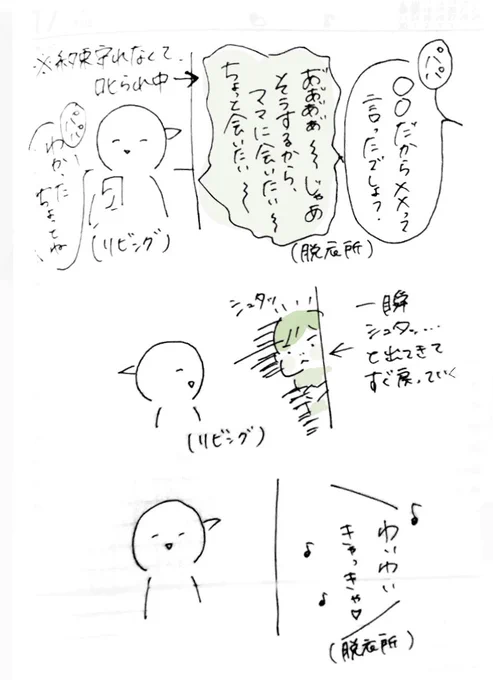 パパ
○○だから××って
言ったでしょう?
あ゛ああ゛ぁ゛~~じゃあ
そうするから、
ママに会いたい~
ちょっと会いたい~
(脱衣所)
※約束守れなくて、
叱られ中→
パパ
わかった
ちょっとね
(リビング)
シュタッ
一瞬
シュタッ…
と出てきて
すぐ戻っていく
(リビング)
わいわい
きゃっきゃ♡
(脱衣所)